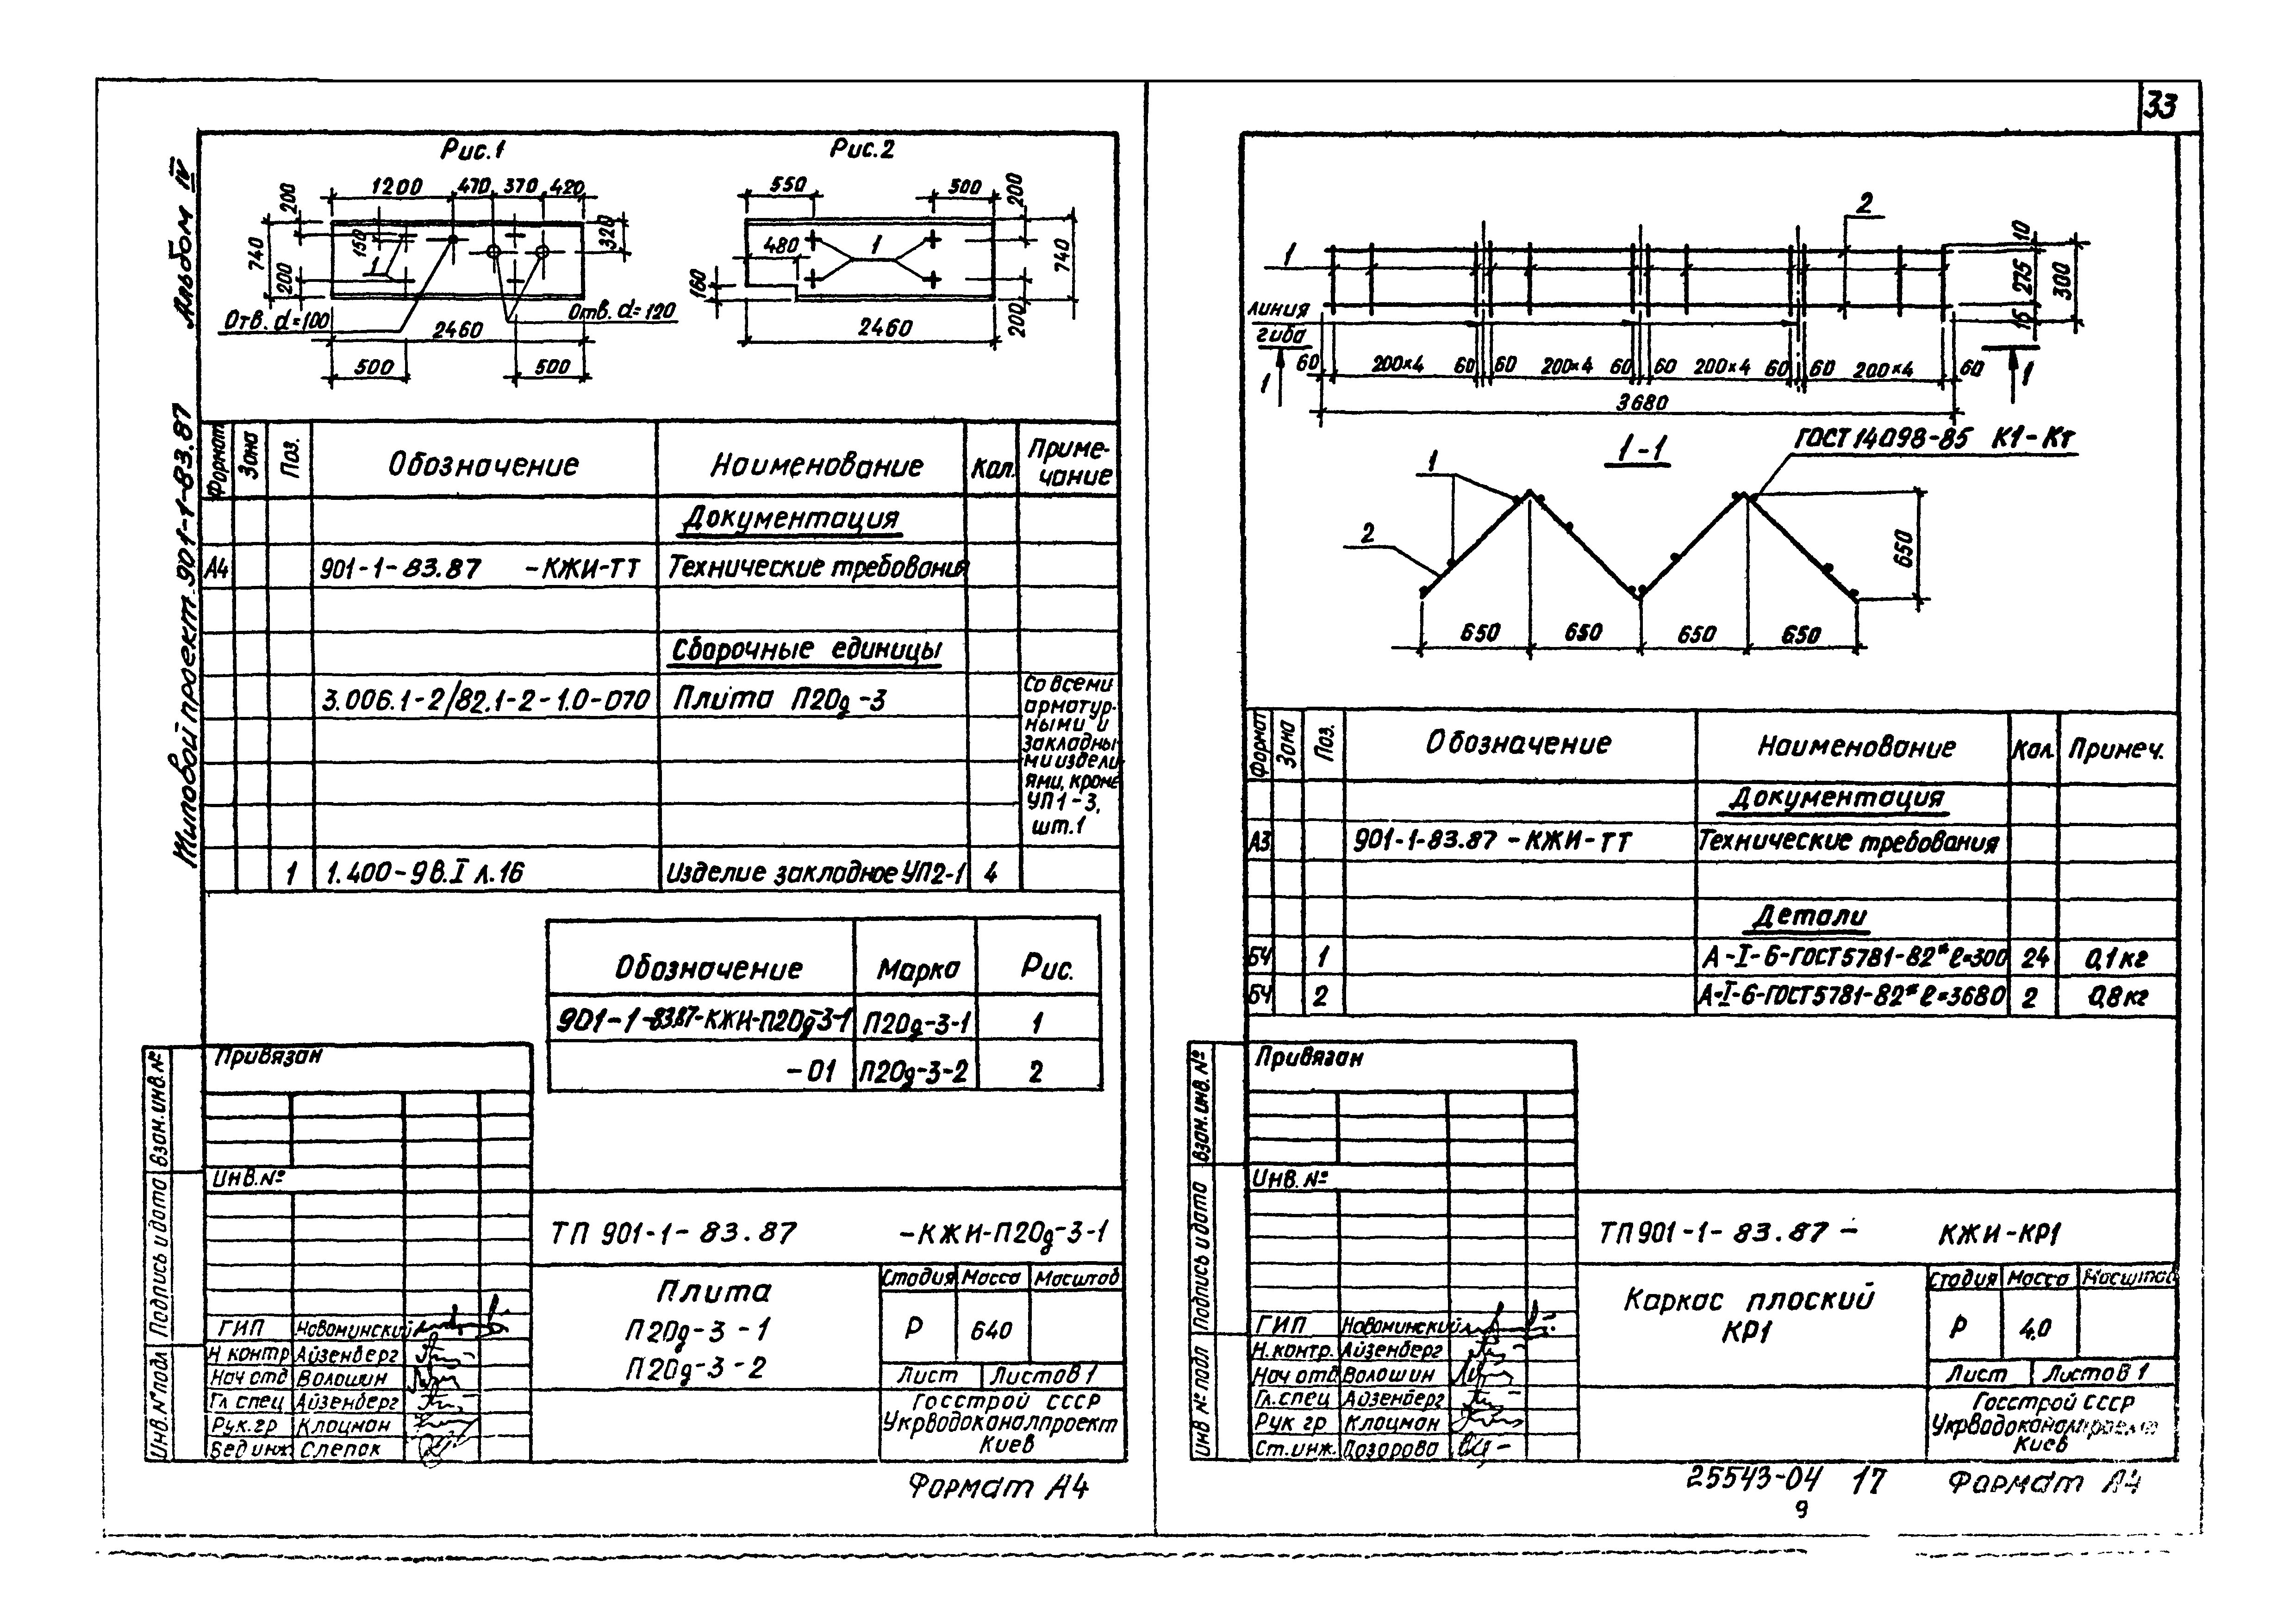 33
Альбом IV
Типовой проект 901-1-83.87
Рис.1
1200 470 370 420
200
740
150
200
320
1
Отв. d=100
Отв. d=120
2460
500 500
Рис.2
550 500 200
480 1 740
160
2460 200
Формат Зона Поз. Обозначение Наименование Кол. Приме-
чание
Документация
А4 901-1-83.87 -КЖИ-ТТ Технические требования
Сборочные единицы
3.006.1-2/82.1-2-1.0-070 Плита П20д-3
Со всеми
арматур-
ными и
закладны-
ми издели-
ями, кроме
УП1-3,
шт.1
1 1.400-9 в.I л.16 Изделие закладное УП2-1 4
Обозначение Марка Рис.
901-1-83.87-КЖИ-П20д-3-1 П20д-3-1 1
-01 П20д-3-2 2
Привязан
Инв.№
Взам.инв.№
Подпись и дата
Инв.№подл
ТП 901-1-83.87 -КЖИ-П20д-3-1
Плита
П20д-3-1
П20д-3-2
Стадия Масса Масштаб
Р 640
Лист Листов 1
Госстрой СССР
Укрводоканалпроект
Киев
ГИП Новоминский
Н контр Айзенберг
Нач отд Волошин
Гл спец Айзенберг
Рук.гр Клоцман
Вед инж Слепак
Формат А4
2
1
10
275
300
15
линия
гиба
60 200×4 60 60 200×4 60 60 200×4 60 60 200×4 60
1 1
3680
1-1
ГОСТ 14098-85 К1-Кт
1
2
650
650 650 650 650
Формат Зона Поз. Обозначение Наименование Кол. Примеч.
Документация
А3 901-1-83.87-КЖИ-ТТ Технические требования
Детали
БЧ 1 А-I-6-ГОСТ5781-82* ℓ=300 24 0,1 кг
БЧ 2 А-I-6-ГОСТ5781-82* ℓ=3680 2 0,8 кг
Привязан
Инв.№
Взам.инв.№
Подпись и дата
Инв №подл
ТП 901-1-83.87 - КЖИ-КР1
Каркас плоский
КР1
Стадия Масса Масштаб
Р 4.0
Лист Листов 1
Госстрой СССР
Укрводоканалпроект
Киев
ГИП Новоминский
Н.контр. Айзенберг
Нач отд Волошин
Гл.спец Айзенберг
Рук гр Клоцман
Ст.инж. Дозорова
25543-04 17 Формат А4
9